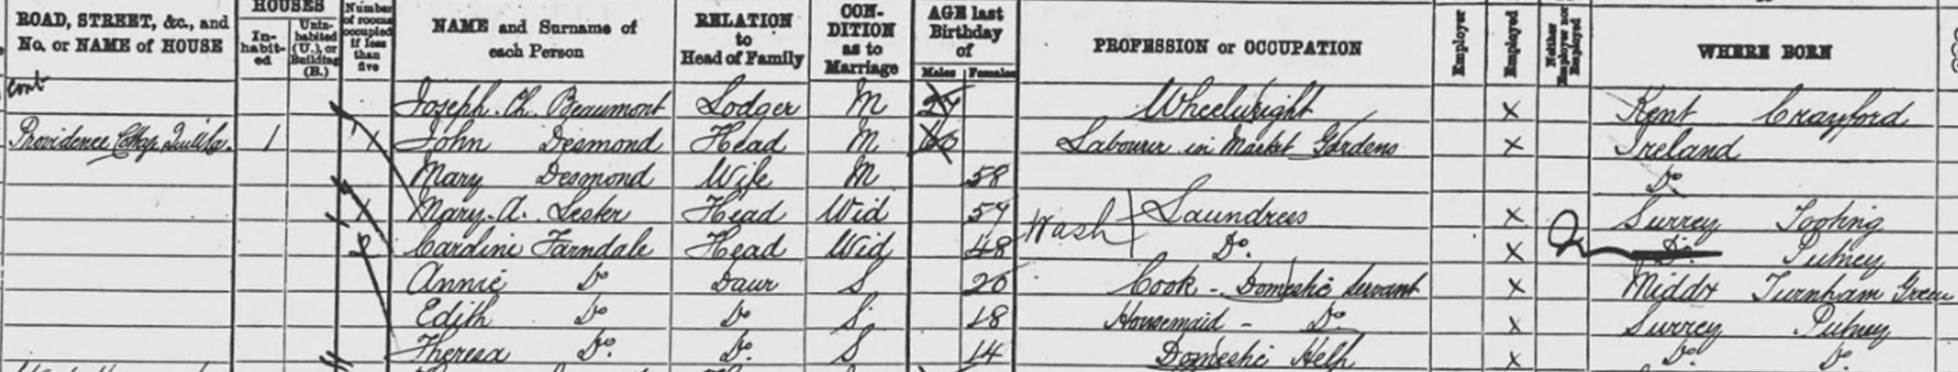 ROAD, STREET, &c., and No. or NAME of HOUSE
HOUSES
In-habit-ed
Unin-habited (U.), or Building (B.)
Number of rooms occupied if less than five
NAME and Surname of each Person
RELATION to Head of Family
CON-DITION as to Marriage
AGE last Birthday of
Males Females
PROFESSION or OCCUPATION
Employer
Employed
Neither Employer nor Employed
WHERE BORN
cont
Joseph Ch. Beaumont Lodger M Wheelwright X Kent Crayford
Providence Cottage 1 John Desmond Head M 60 Labourer in Market Gardens X Ireland
Mary Desmond Wife M 58 Do
Mary A. Lester Head Wid 57 Wash Laundress X Surrey Tooting
Caroline Farndale Head Wid 48 Do. X Do. Putney
Annie Do Daur S 20 Cook - Domestic Servant X Middx Turnham Green
Edith Do Do S 18 Housemaid - Do. X Surrey Putney
Theresa Do. Do. S 14 Domestic Help X Do. Do.